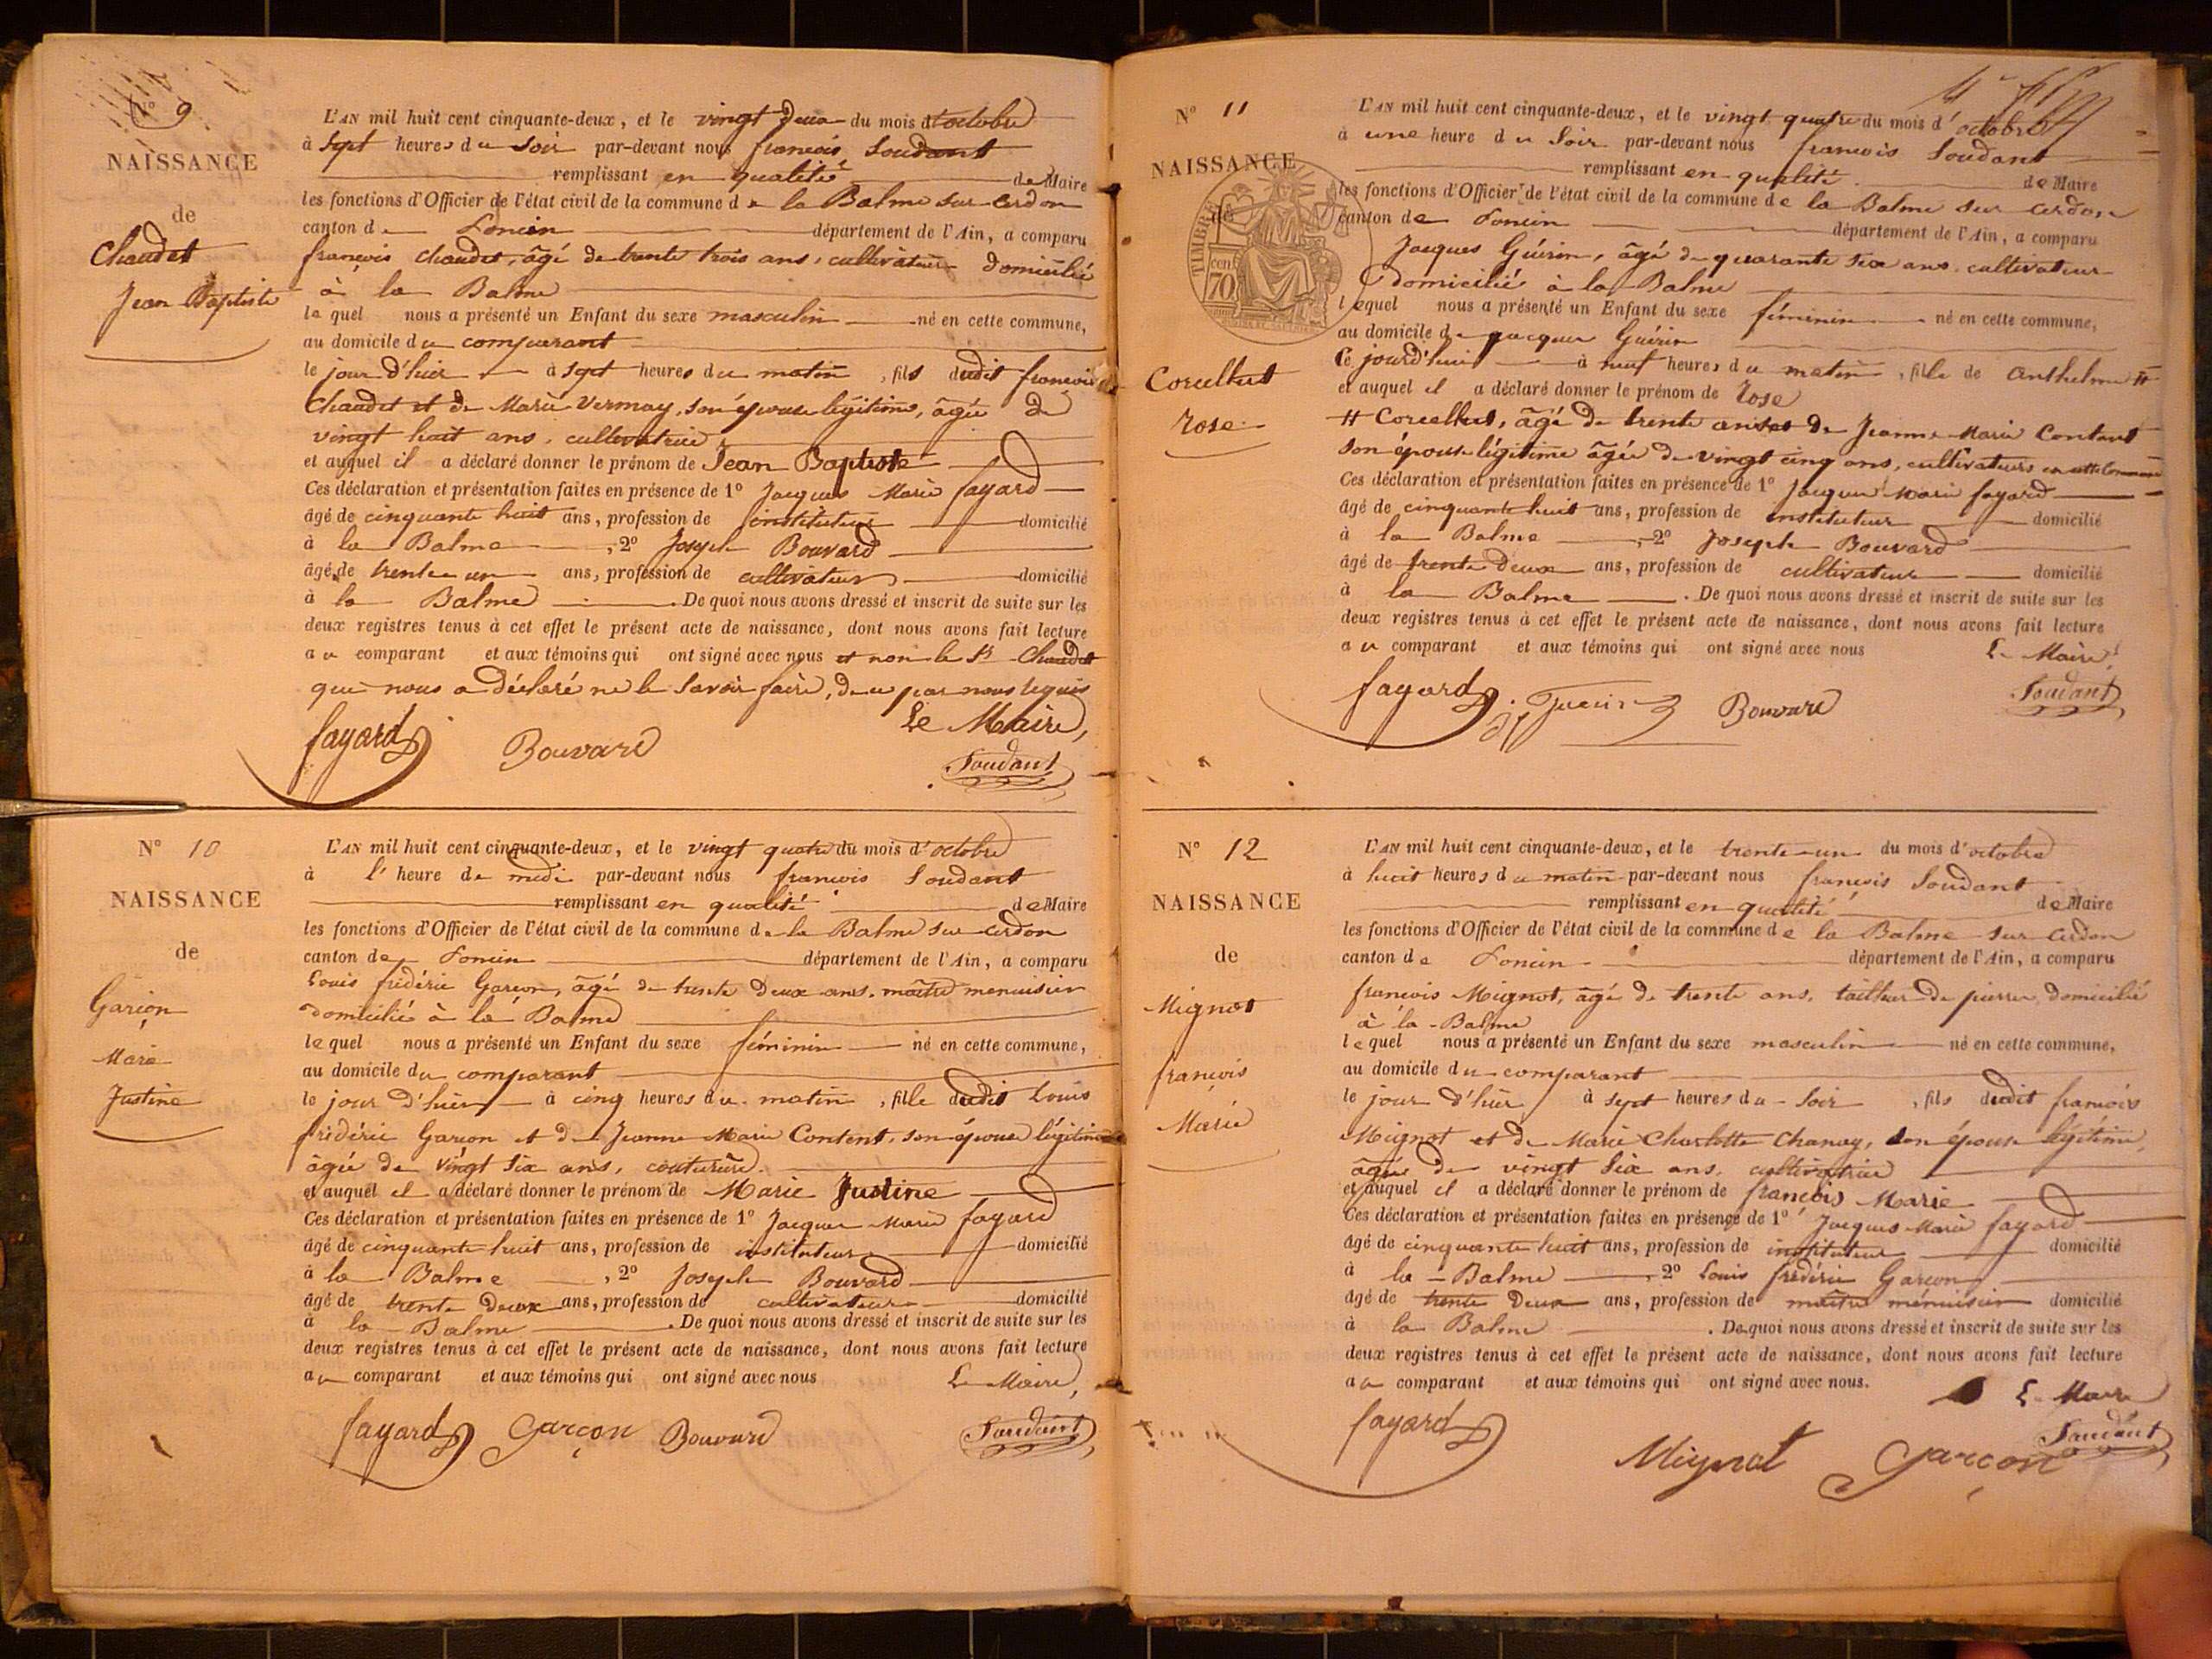 N° 9
NAISSANCE
de
Chaudet
Jean Baptiste
L'AN mil huit cent cinquante-deux, et le vingt deux du mois d'octobre
à sept heures du soir par-devant nous françois Soudant
remplissant en qualité de Maire
les fonctions d'Officier de l'état civil de la commune de la Balme sur Cerdon
canton de Poncin département de l'Ain, a comparu
françois Chaudet, âgé de trente trois ans, cultivateur domicilié
à la Balme
lequel nous a présenté un Enfant du sexe masculin né en cette commune,
au domicile du comparant
le jour d'hier à sept heures du matin, fils dudit françois
Chaudet et de Marie Vermay, son épouse légitime, âgée de
vingt huit ans, cultivatrice,
et auquel il a déclaré donner le prénom de Jean Baptiste
Ces déclaration et présentation faites en présence de 1° Jacques Marie fayard
âgé de cinquante huit ans, profession de instituteur domicilié
à la Balme, 2° Joseph Bouvard
âgé de trente un ans, profession de cultivateur domicilié
à la Balme. De quoi nous avons dressé et inscrit de suite sur les
deux registres tenus à cet effet le présent acte de naissance, dont nous avons fait lecture
au comparant et aux témoins qui ont signé avec nous et non le Sr Chaudet
qui nous a déclaré ne le savoir faire, de ce par nous requis
Le Maire,
fayard Bouvard Soudant
N° 10
NAISSANCE
de
Garçon
Marie
Justine
L'AN mil huit cent cinquante-deux, et le vingt quatre du mois d'octobre
à l'heure de midi par-devant nous françois Soudant
remplissant en qualité de Maire
les fonctions d'Officier de l'état civil de la commune de la Balme sur Cerdon
canton de Poncin département de l'Ain, a comparu
Louis frédéric Garçon, âgé de trente deux ans, maître menuisier
domicilié à la Balme
lequel nous a présenté un Enfant du sexe féminin né en cette commune,
au domicile du comparant
le jour d'hier à cinq heures du matin, fille dudit Louis
frédéric Garçon et de Jeanne Marie Content, son épouse légitime
âgée de vingt six ans, couturière.
et auquel il a déclaré donner le prénom de Marie Justine
Ces déclaration et présentation faites en présence de 1° Jacques Marie fayard
âgé de cinquante huit ans, profession de instituteur domicilié
à la Balme, 2° Joseph Bouvard
âgé de trente deux ans, profession de cultivateur domicilié
à la Balme. De quoi nous avons dressé et inscrit de suite sur les
deux registres tenus à cet effet le présent acte de naissance, dont nous avons fait lecture
au comparant et aux témoins qui ont signé avec nous Le Maire,
fayard Garçon Bouvard Soudant
N° 11
NAISSANCE
de
TIMBRE
cen.
70
Corcellut
rose
L'AN mil huit cent cinquante-deux, et le vingt quatre du mois d'octobre
à une heure du Soir par-devant nous françois Soudant
remplissant en qualité de Maire
les fonctions d'Officier de l'état civil de la commune de la Balme sur Cerdon
canton de Poncin département de l'Ain, a comparu
Jacques Guérin, âgé de quarante six ans, cultivateur
domicilié à la Balme
lequel nous a présenté un Enfant du sexe féminin né en cette commune,
au domicile de Jacques Guérin
Ce jourd'hui à neuf heures du matin, fille de Anthelme #
et auquel il a déclaré donner le prénom de Rose
# Corcellut, âgé de trente ans et de Jeanne Marie Contant
son épouse légitime âgée de vingt cinq ans, cultivateurs en cette Commune
Ces déclaration et présentation faites en présence de 1° Jacques Marie fayard
âgé de cinquante huit ans, profession de instituteur domicilié
à la Balme, 2° Joseph Bouvard
âgé de trente deux ans, profession de cultivateur domicilié
à la Balme. De quoi nous avons dressé et inscrit de suite sur les
deux registres tenus à cet effet le présent acte de naissance, dont nous avons fait lecture
au comparant et aux témoins qui ont signé avec nous Le Maire,
fayard Guerin Bouvard Soudant
N° 12
NAISSANCE
de
Mignot
françois
Marie
L'AN mil huit cent cinquante-deux, et le trente-un du mois d'octobre
à huit heures du matin par-devant nous françois Soudant
remplissant en qualité de Maire
les fonctions d'Officier de l'état civil de la commune de la Balme sur Cerdon
canton de Poncin département de l'Ain, a comparu
françois Mignot, âgé de trente ans, tailleur de pierre, domicilié
à la Balme
lequel nous a présenté un Enfant du sexe masculin né en cette commune,
au domicile du comparant
le jour d'hier à sept heures du Soir, fils dudit françois
Mignot et de Marie Charlotte Chanay, son épouse légitime,
âgée de vingt six ans, cultivatrice
et auquel il a déclaré donner le prénom de françois Marie
Ces déclaration et présentation faites en présence de 1° Jacques Marie fayard
âgé de cinquante huit ans, profession de instituteur domicilié
à la Balme, 2° Louis frédéric Garçon
âgé de trente deux ans, profession de maître menuisier domicilié
à la Balme. De quoi nous avons dressé et inscrit de suite sur les
deux registres tenus à cet effet le présent acte de naissance, dont nous avons fait lecture
au comparant et aux témoins qui ont signé avec nous. Le Maire
fayard Mignot Garçon Soudant